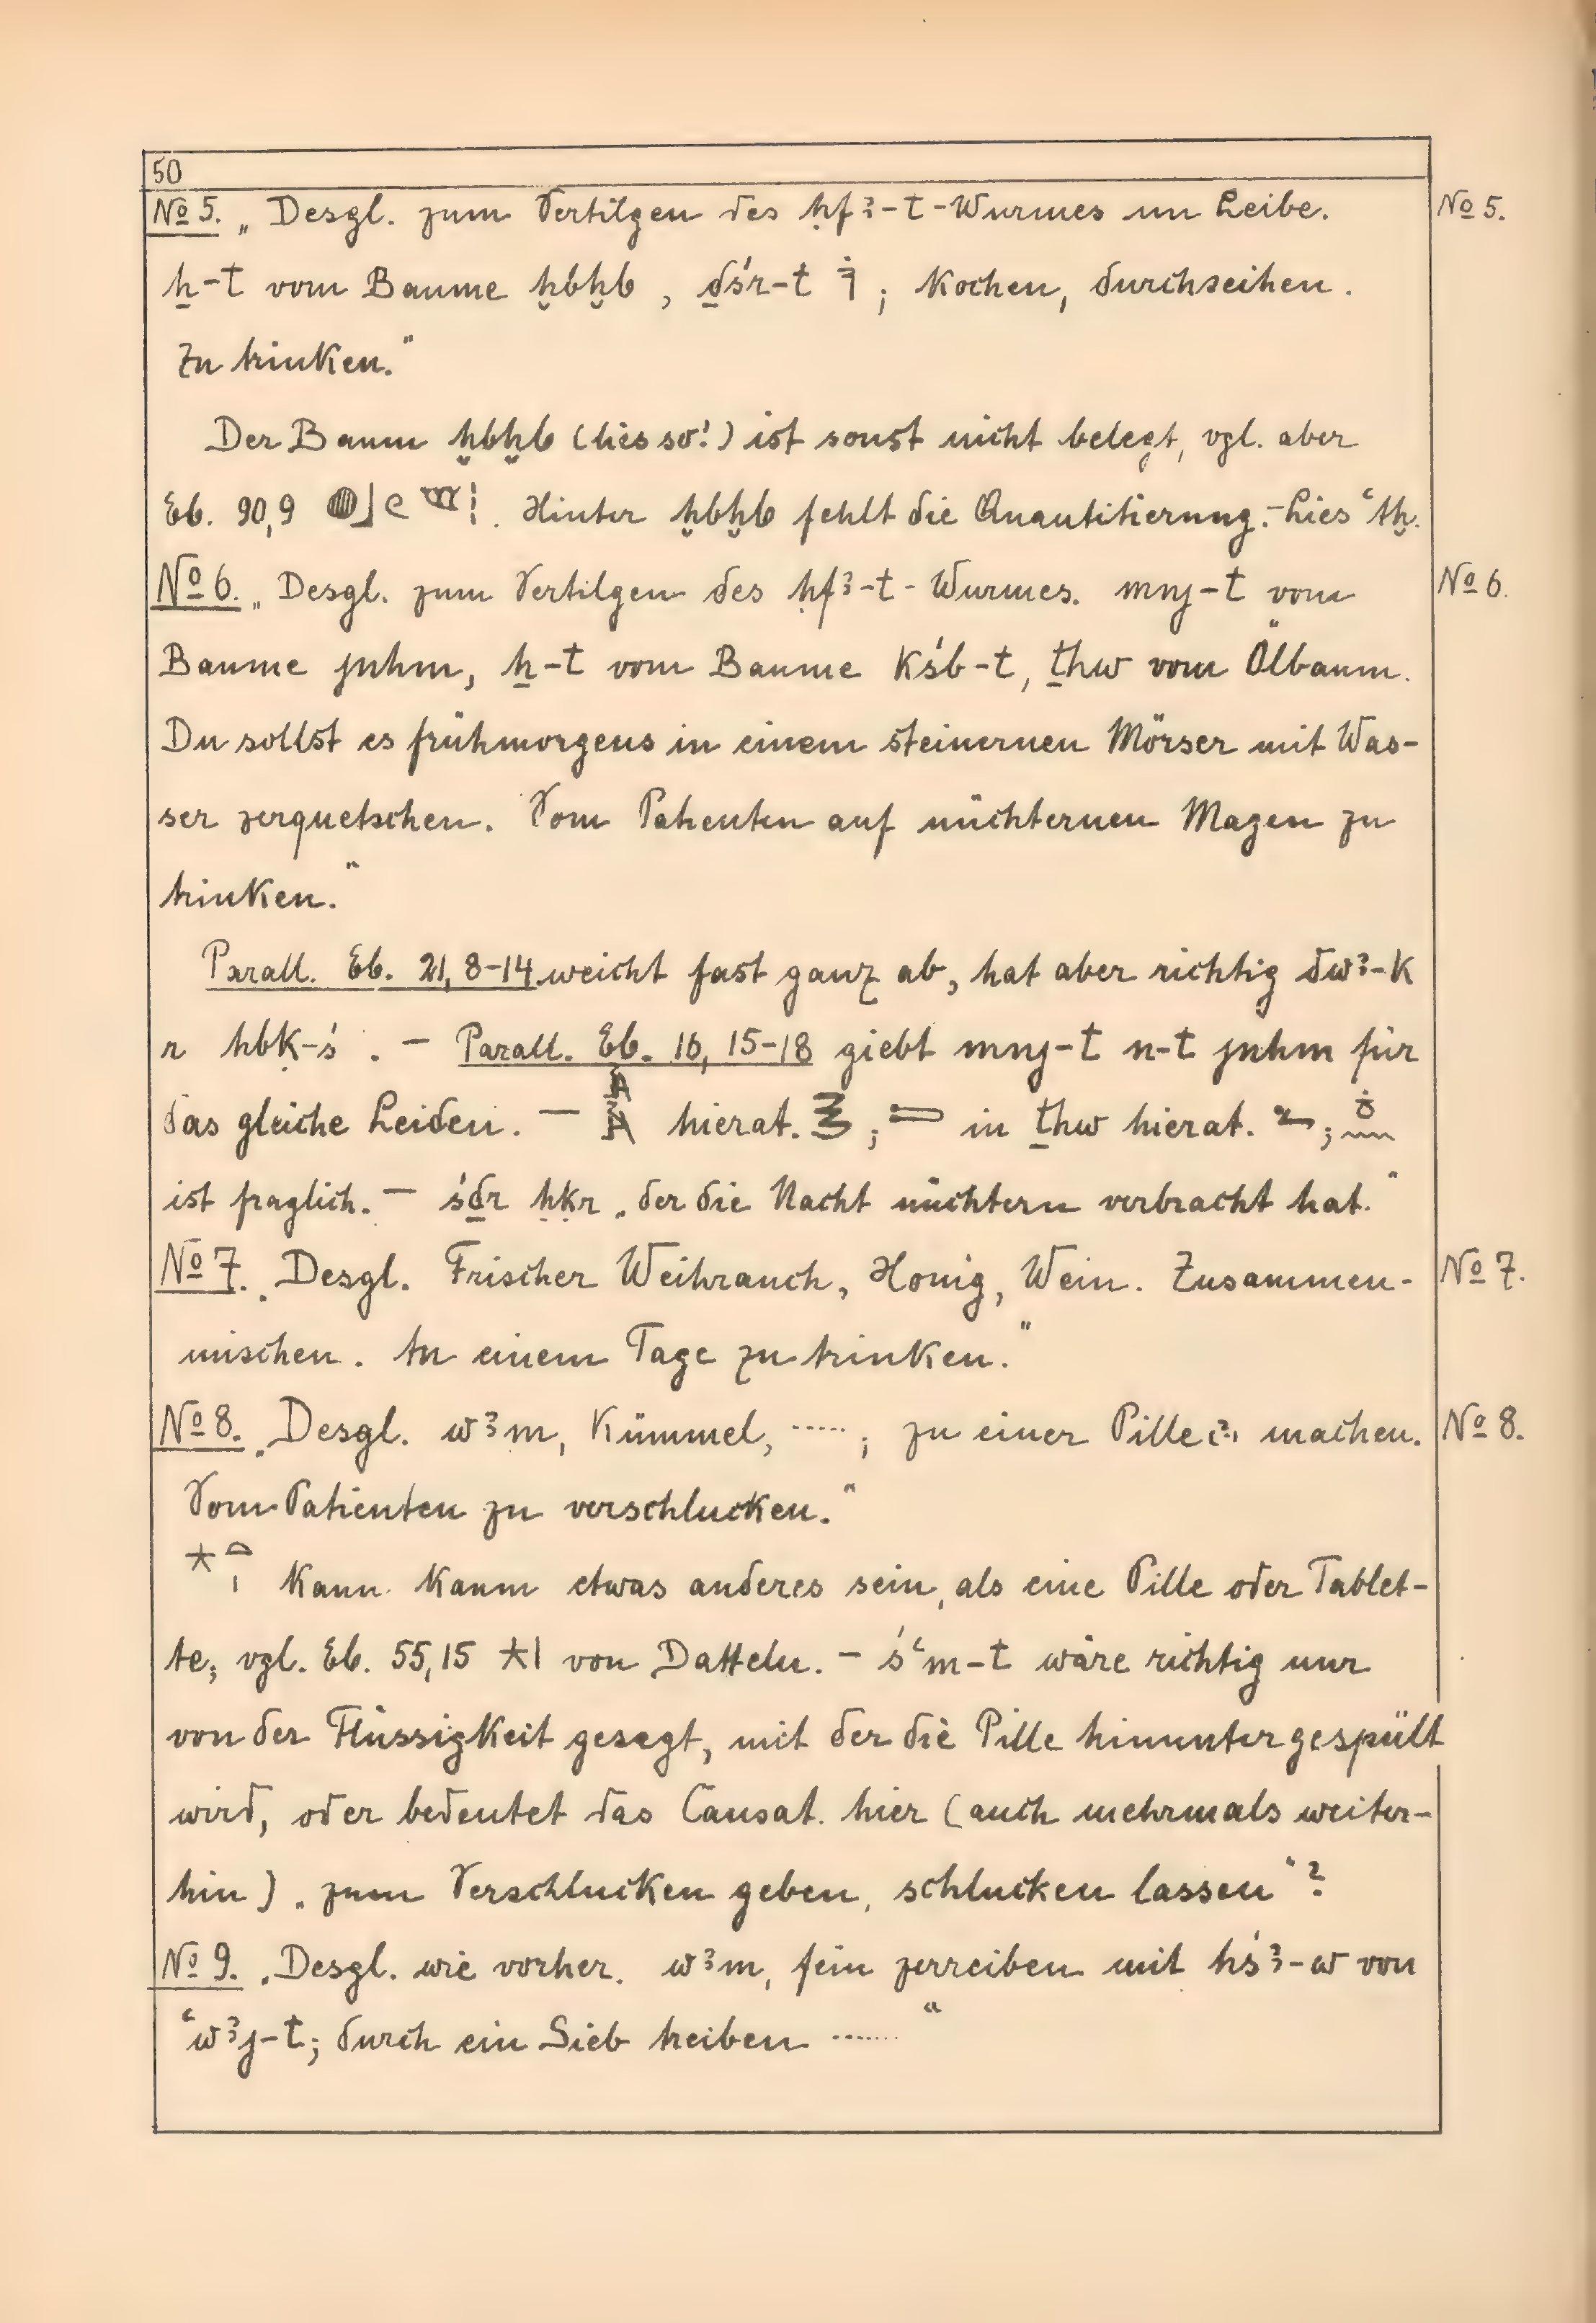 50
No 5. „Desgl. zum Vertilgen des ḥfꜣ-t-Wurmes im Leibe. No 5.
ẖ-t vom Baume ḫbḫb, ḏśr-t ; Kochen, durchseihen.
Zu trinken."
Der Baum ḫbḫb (lies so!) ist sonst nicht belegt, vgl. aber
Eb. 90,9 . Hinter ḫbḫb fehlt die Quantitierung. – Lies ʿtḫ.
No 6. „Desgl. zum Vertilgen des ḥfꜣ-t-Wurmes. mnj-t vom No 6.
Baume jnhm, ẖ-t vom Baume kśb-t, ṯhw vom Ölbaum.
Du sollst es frühmorgens in einem steinernen Mörser mit Was-
ser zerquetschen. Vom Patienten auf nüchternen Magen zu
trinken."
Parall. Eb. 21, 8-14 weicht fast ganz ab, hat aber richtig dwꜣ-k
r ḥbk-ś. – Parall. Eb. 16, 15-18 giebt mnj-t n-t jnhm für
das gleiche Leiden. – hierat. ; in ṯhw hierat. ;
ist fraglich. – śḏr ḥḳr „der die Nacht nüchtern verbracht hat."
No 7. „Desgl. Frischer Weihrauch, Honig, Wein. Zusammen- No 7.
mischen. An einem Tage zu trinken."
No 8. „Desgl. wꜣm, Kümmel, ·····; zu einer Pille(?) machen. No 8.
Vom Patienten zu verschlucken."
Kann kaum etwas anderes sein, als eine Pille oder Tablet-
te, vgl. Eb. 55,15 von Datteln. – śʿm-t wäre richtig nur
von der Flüssigkeit gesagt, mit der die Pille hinuntergespült
wird, oder bedeutet das Causat. hier (auch mehrmals weiter-
hin) „zum Verschlucken geben, schlucken lassen"?
No 9. „Desgl. wie vorher. wꜣm, fein zerreiben mit ḥśꜣ-w von
ʿwꜣj-t; durch ein Sieb treiben ·······"